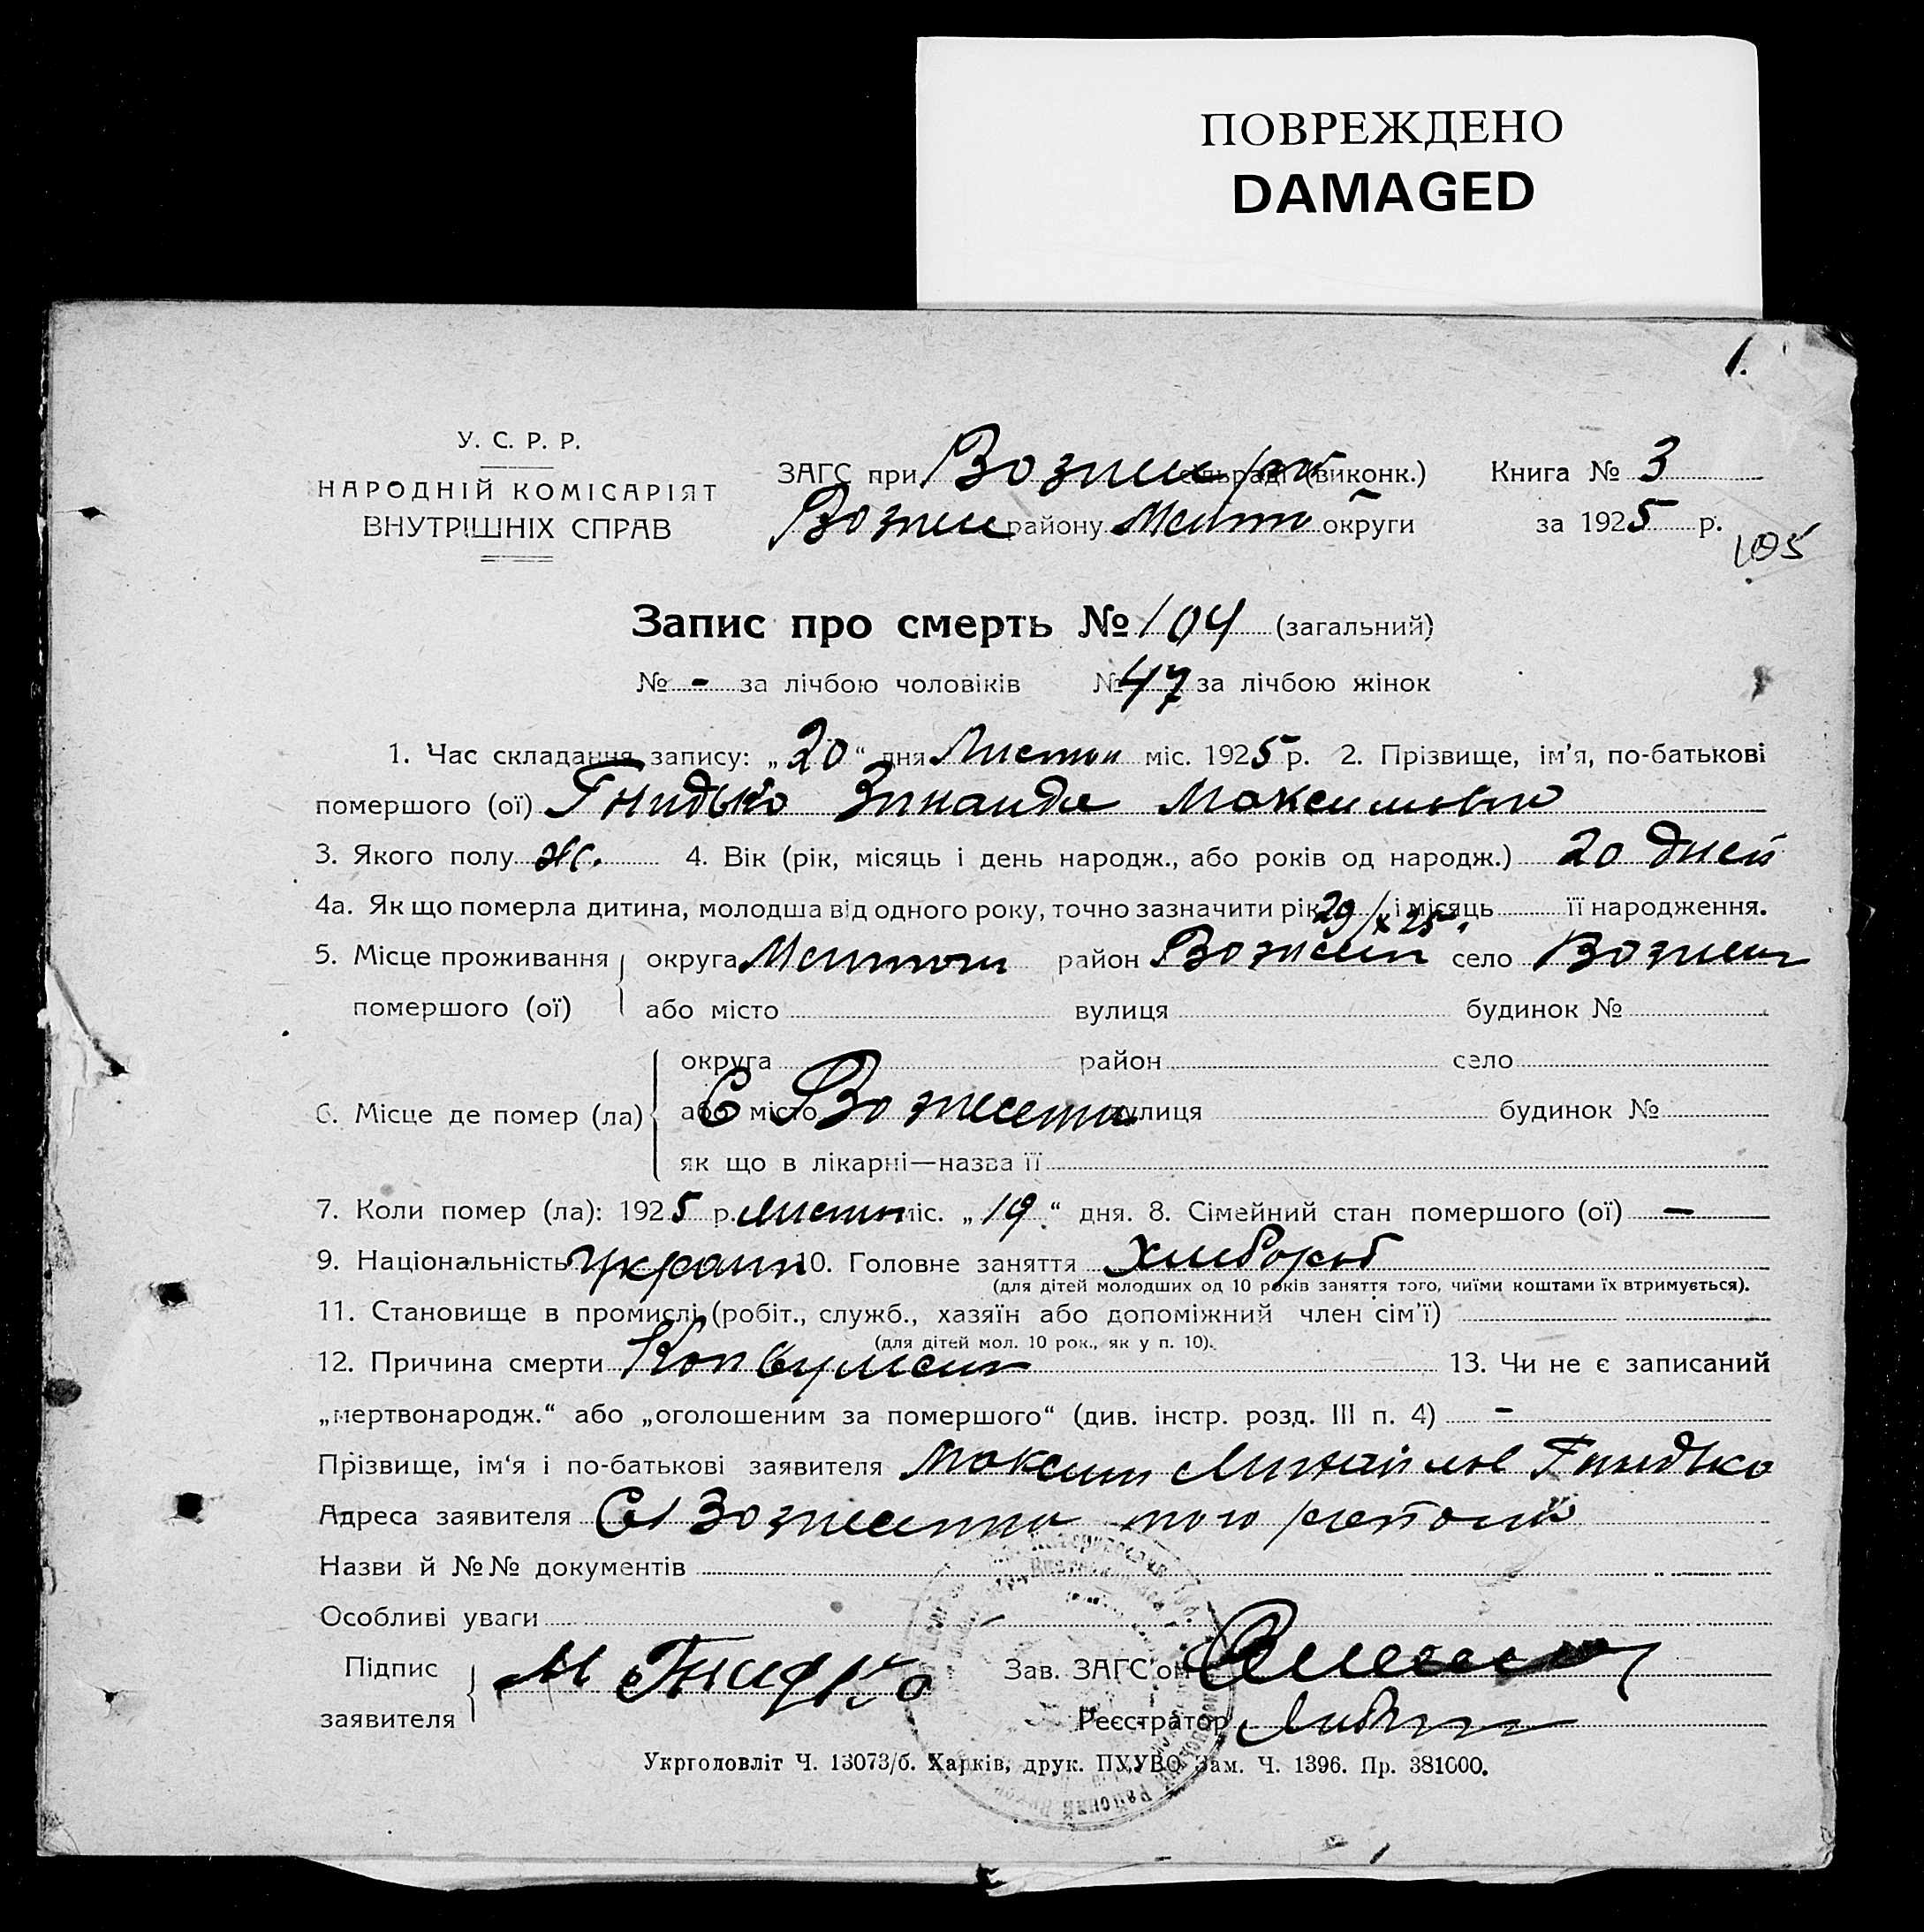 ПОВРЕЖДЕНО
DAMAGED
1.
У. С. Р. Р.
НАРОДНІЙ КОМІСАРІЯТ
ВНУТРІШНІХ СПРАВ
ЗАГС при Вознес сільраді (виконк.) Книга № 3
Вознес району Меліт округи за 1925 р.
105
Запис про смерть № 104 (загальний)
№ - за лічбою чоловіків № 47 за лічбою жінок
1. Час складання запису: „20“ дня Листоп міс. 1925 р. 2. Прізвище, ім'я, по-батькові
помершого (ої) Гнидько Зинаида Максимовна
3. Якого полу ж. 4. Вік (рік, місяць і день народж., або років од народж.) 20 дней
4а. Як що померла дитина, молодша від одного року, точно зазначити рік 29/X 25. і місяць її народження.
5. Місце проживання округа Мелитоп район Вознесен село Вознесен
помершого (ої) або місто вулиця будинок №
округа район село
6. Місце де помер (ла) або місто С Вознесенка вулиця будинок №
як що в лікарні—назва її
7. Коли помер (ла): 1925 р. Листоп міс. „19“ дня. 8. Сімейний стан помершого (ої) —
9. Національність Украин 10. Головне заняття Хлебороб
(для дітей молодших од 10 років заняття того, чиїми коштами їх втримується).
11. Становище в промислі (робіт., служб., хазяїн або допоміжний член сім'ї)
(для дітей мол. 10 рок., як у п. 10).
12. Причина смерти Конвульсии 13. Чи не є записаний
„мертвонародж.“ або „оголошеним за помершого“ (див. інстр. розд. III п. 4) -
Прізвище, ім'я і по-батькові заявителя Максим Михайлов Гнидько
Адреса заявителя С Вознесенка того района
Назви й №№ документів
Особливі уваги
Підпис М Гнидько Зав. ЗАГС'ом
заявителя Реєстратор
Укрголовліт Ч. 13073/б. Харків, друк. ПХУВО Зам. Ч. 1396. Пр. 381000.